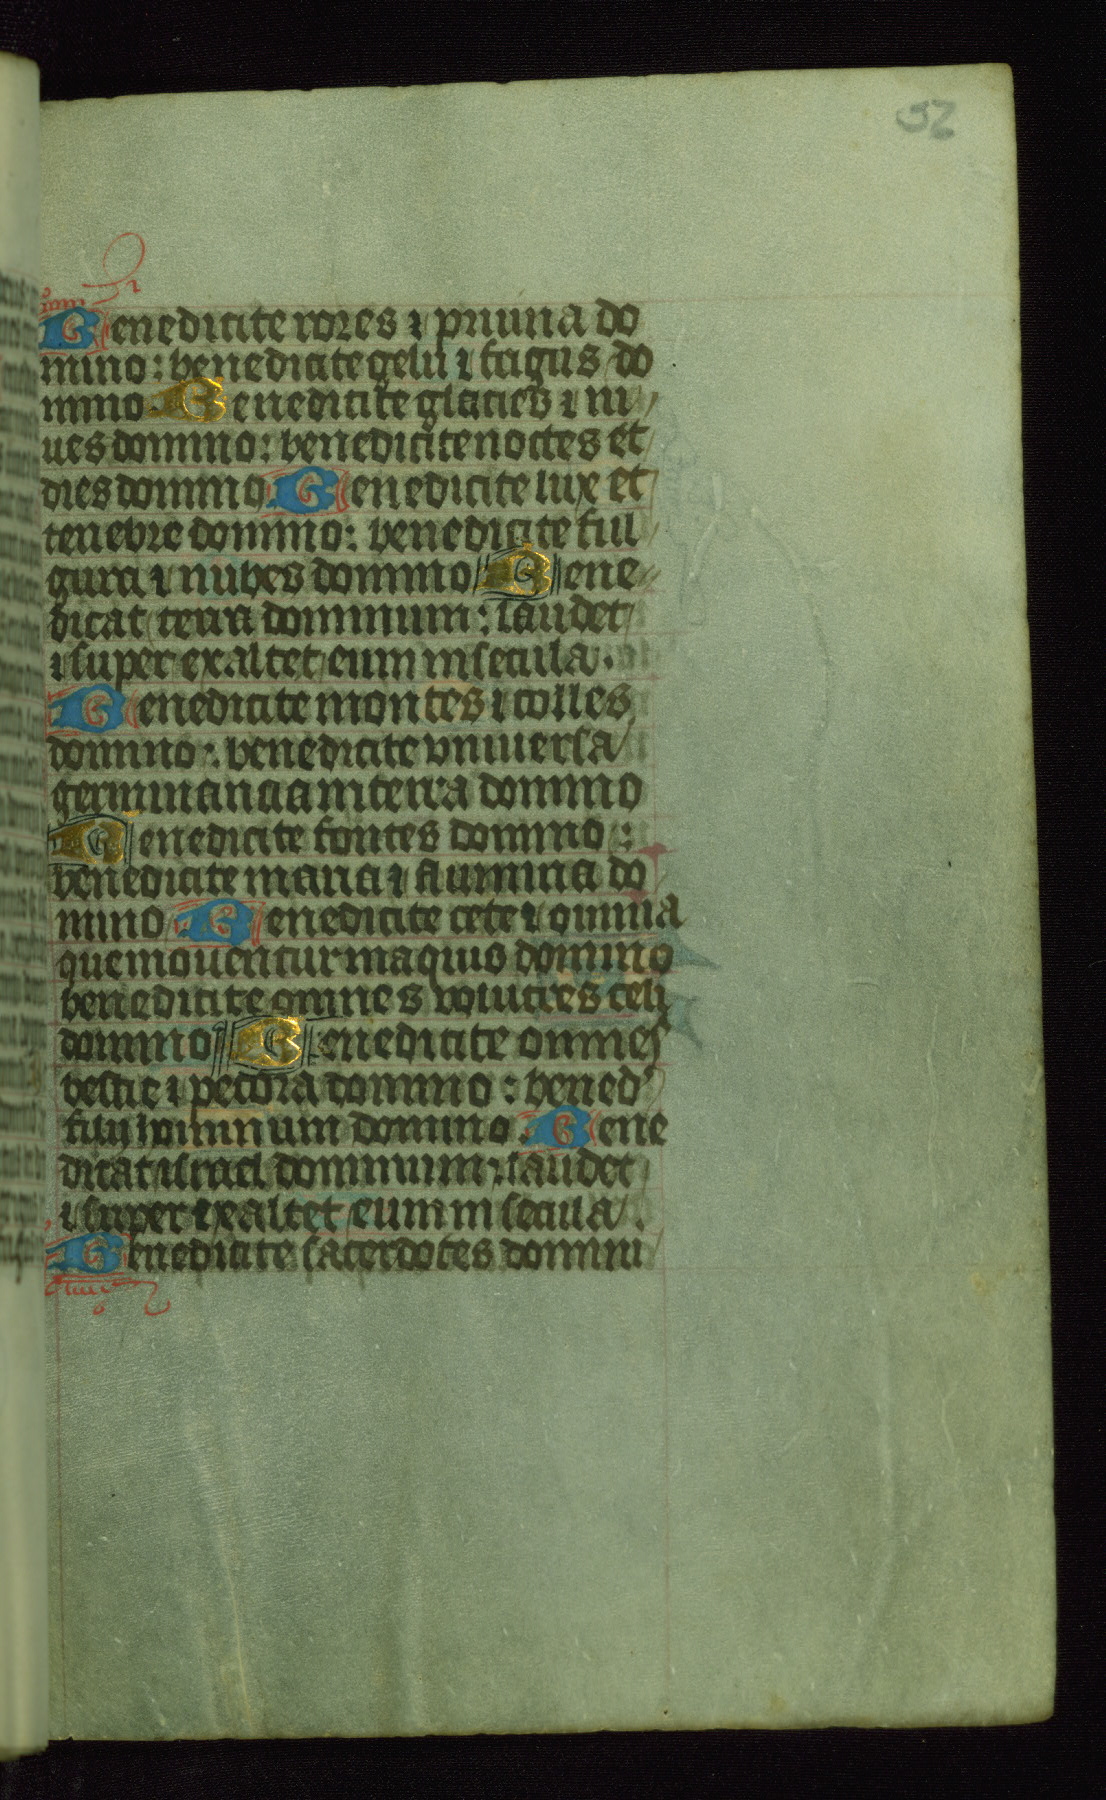 52
Benedicite rores ⁊ pruina do
mino: benedicite gelu ⁊ frigus do
mino. Benedicite glacies ⁊ ni
ues domino: benedicite noctes et
dies domino Benedicite lux et
tenebre domino: benedicite ful
gura ⁊ nubes domino Bene
dicat terra dominum: laudet
⁊ super exaltet eum in secula.
Benedicite montes ⁊ colles
domino: benedicite vniuersa
germinancia in terra domino
Benedicite fontes domino:
benedicite maria ⁊ flumina do
mino Benedicite cete ⁊ omnia
que mouentur in aquis domino
benedicite omnes volucres celi
domino Benedicite omnes
bestie ⁊ pecora domino: bened'
filij hominum domino. Bene
dicat israel dominum: laudet
⁊ super exaltet eum in secula.
Benedicite sacerdotes domini